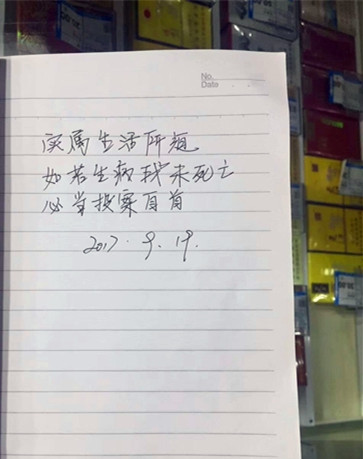 No.
Date
实属生活所逼
如若生病我未死亡
必当投案自首
2017.9.19.